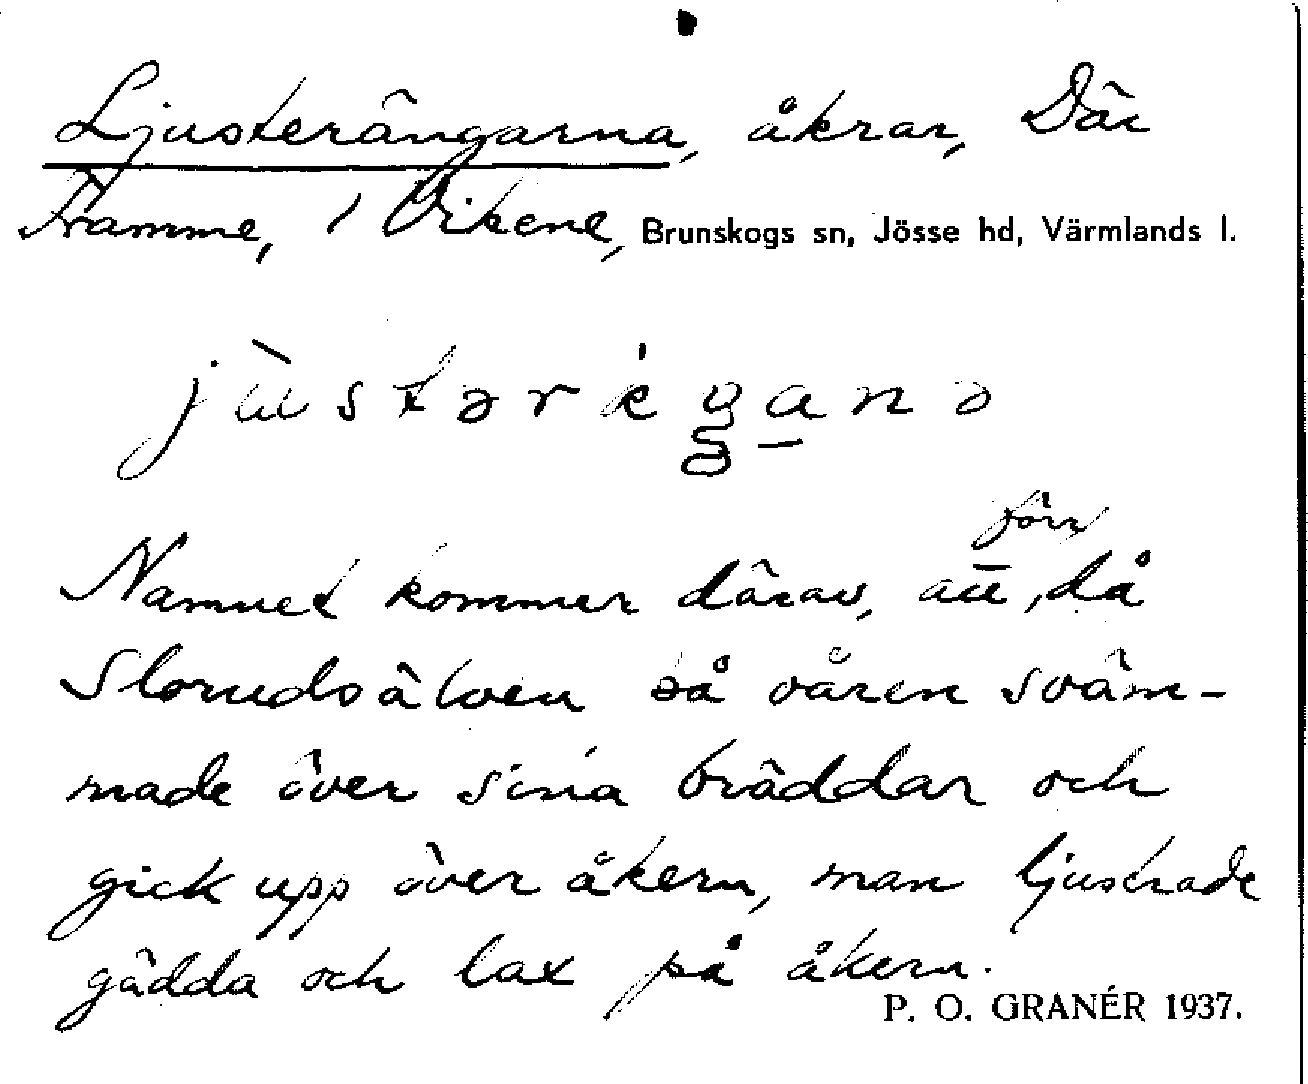 Ljusterängarna, åkrar, Där
Framme, i Vikene, Brunskogs sn, Jösse hd, Värmlands l.
förr
Namnet kommer därav, att, då
Slorudsälven så våren sväm-
made över sina bräddar och
gick upp över åkern, man ljustrade
gädda och lax på åkern.
P. O. GRANÉR 1937.